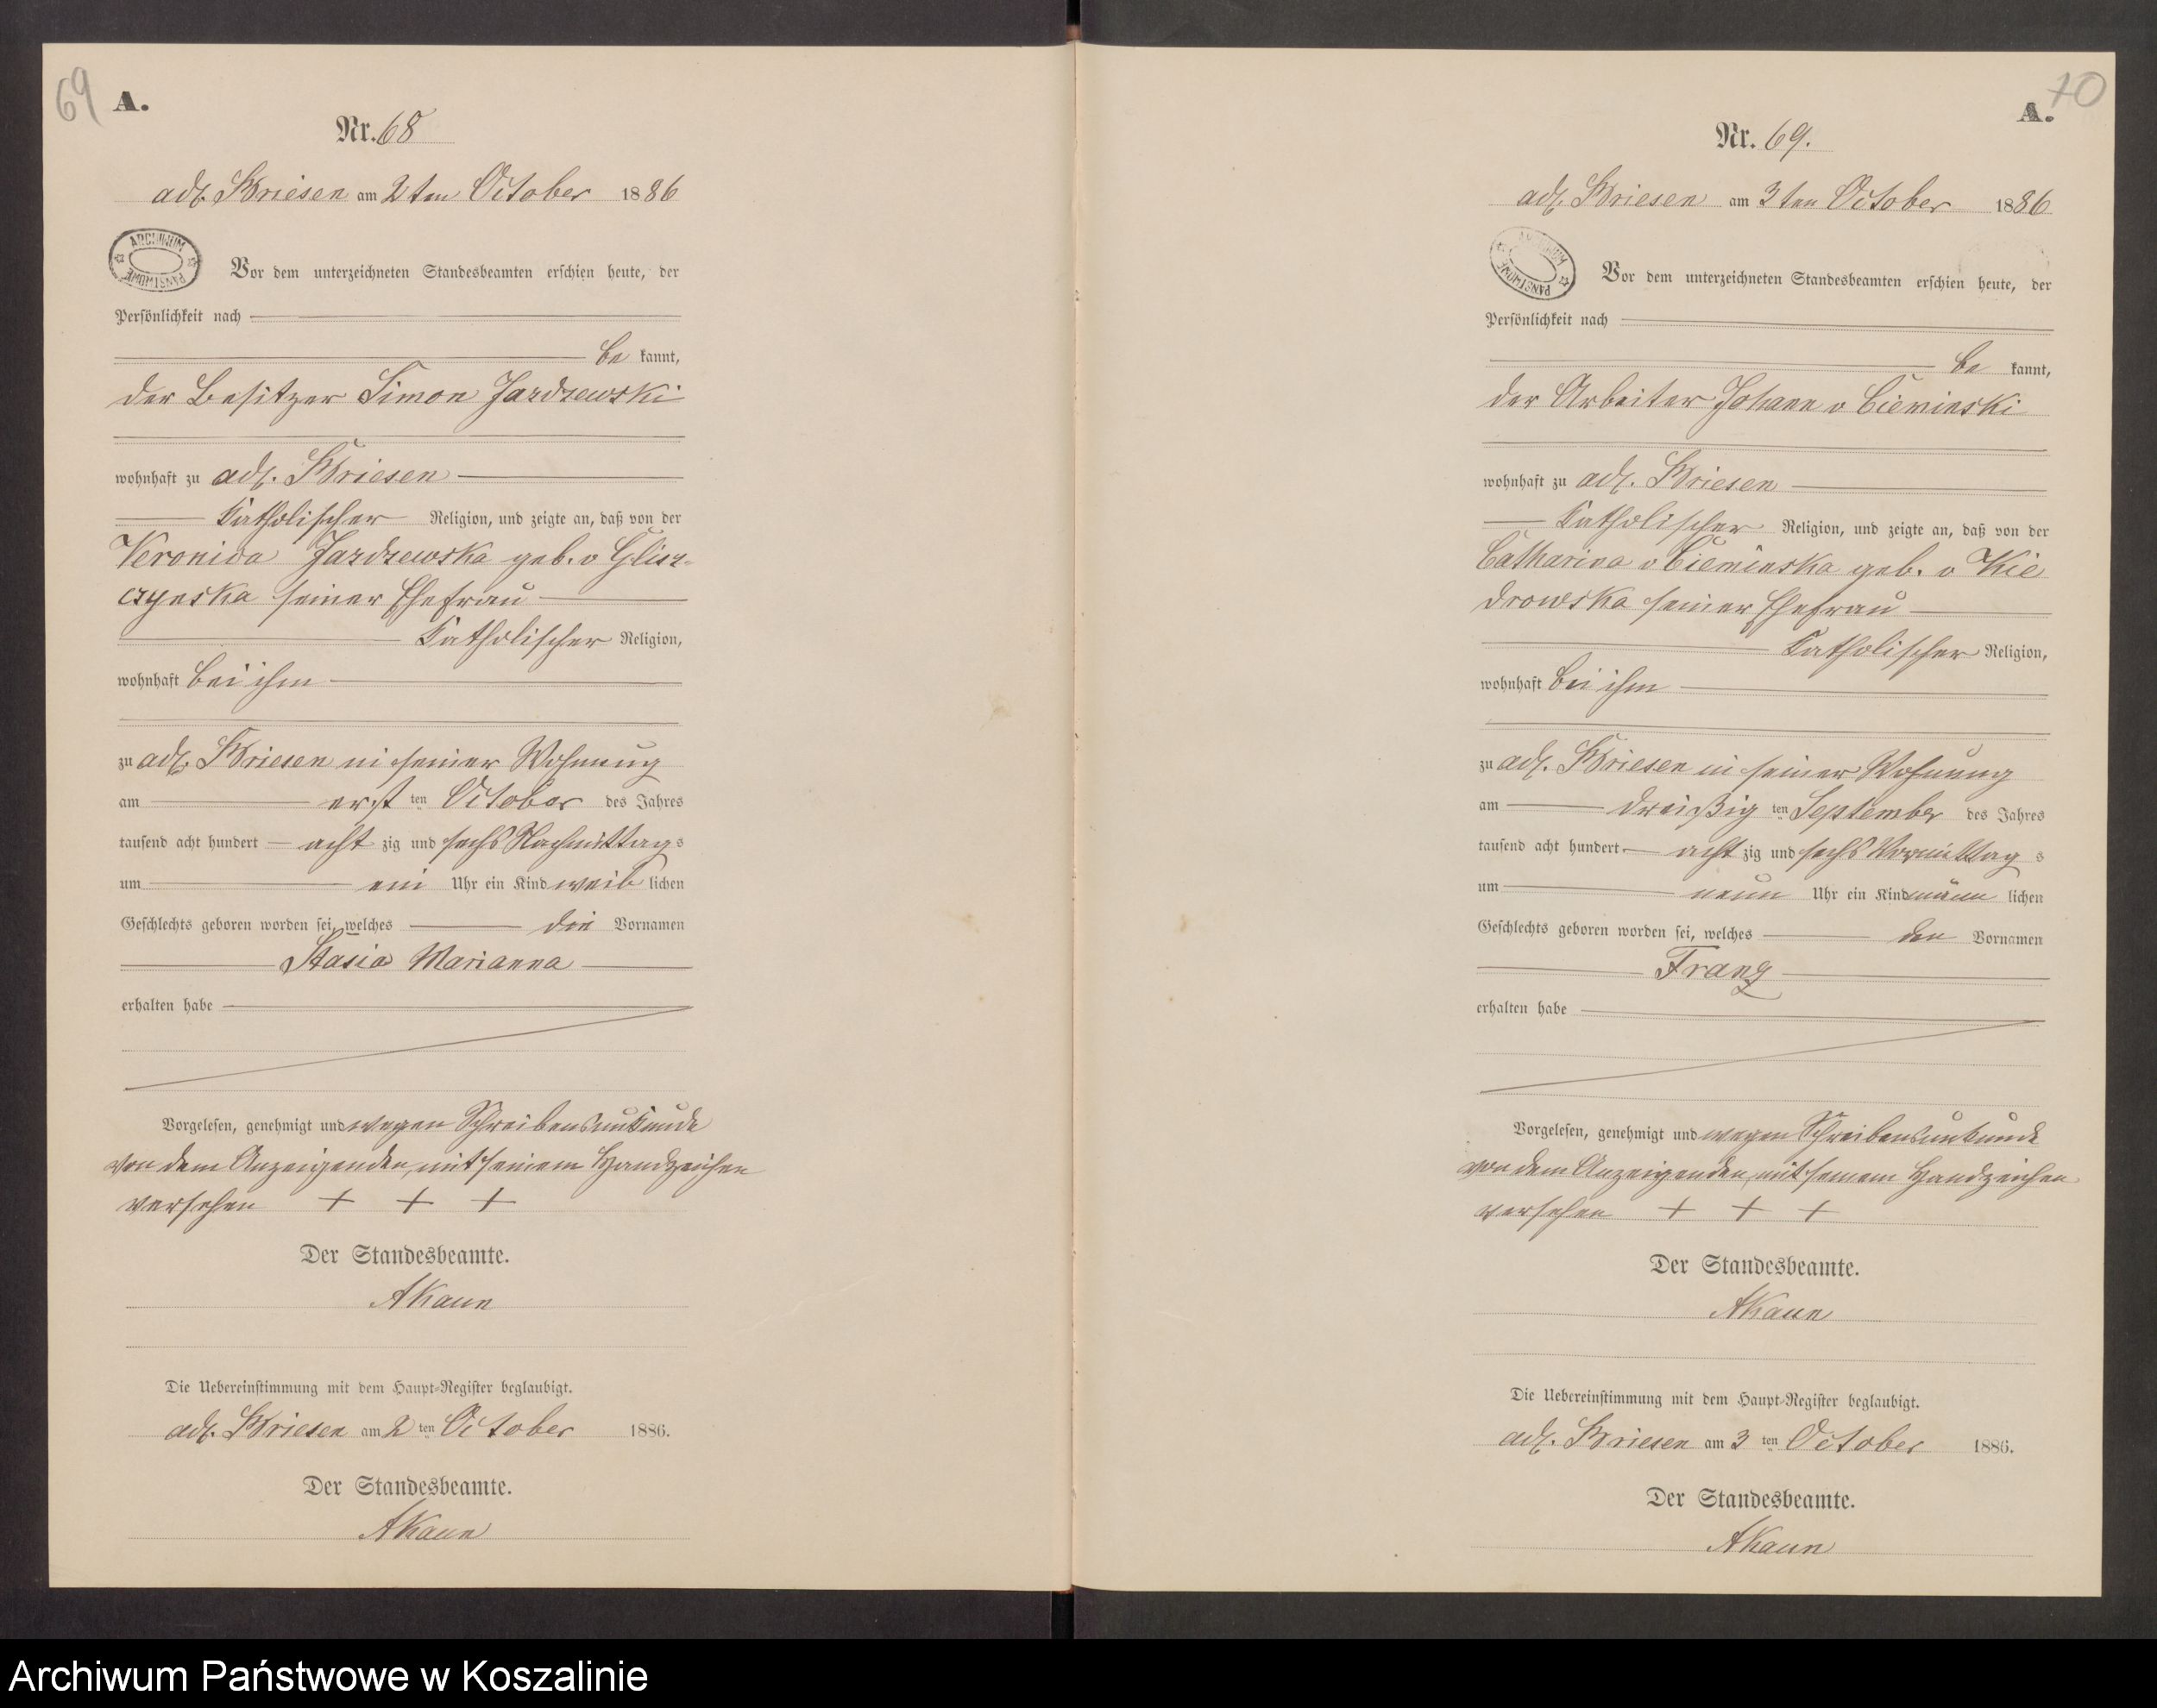 69
A.
Nr. 68
adl. Briesen am 2ten October 1886
ARCHIWUM PAŃSTWOWE
Vor dem unterzeichneten Standesbeamten erschien heute, der
Persönlichkeit nach
be kannt,
der Besitzer Simon Jazdzewski
wohnhaft zu adl. Briesen
Katholischer Religion, und zeigte an, daß von der
Veronica Jazdzewska geb. v Glisz-
czynska seiner Ehefrau
Katholischer Religion,
wohnhaft bei ihm
zu adl. Briesen in seiner Wohnung
am erst ten October des Jahres
tausend acht hundert acht zig und sechs Nachmittags
um ein Uhr ein Kind weib lichen
Geschlechts geboren worden sei, welches die Vornamen
Stasia Marianna
erhalten habe
Vorgelesen, genehmigt und wegen Schreibensunkunde
von dem Anzeigenden, mit seinem Handzeichen
versehen + + +
Der Standesbeamte.
AKaun
Die Uebereinstimmung mit dem Haupt-Register beglaubigt.
adl. Briesen am 2 ten October 1886.
Der Standesbeamte.
AKaun
70
A.
Nr. 69.
adl. Briesen am 3ten October 1886
ARCHIWUM PAŃSTWOWE
Vor dem unterzeichneten Standesbeamten erschien heute, der
Persönlichkeit nach
be kannt,
der Arbeiter Johann v Cieminski
wohnhaft zu adl. Briesen
Katholischer Religion, und zeigte an, daß von der
Catharina v Cieminska geb. v Kie
drowska seiner Ehefrau
Katholischer Religion,
wohnhaft bei ihm
zu adl. Briesen in seiner Wohnung
am dreißig ten September des Jahres
tausend acht hundert acht zig und sechs Vormittag s
um neun Uhr ein Kind männ lichen
Geschlechts geboren worden sei, welches den Vornamen
Franz
erhalten habe
Vorgelesen, genehmigt und wegen Schreibensunkunde
von dem Anzeigenden, mit seinem Handzeichen
versehen + + +
Der Standesbeamte.
AKaun
Die Uebereinstimmung mit dem Haupt-Register beglaubigt.
adl. Briesen am 3 ten October 1886.
Der Standesbeamte.
AKaun
Archiwum Państwowe w Koszalinie